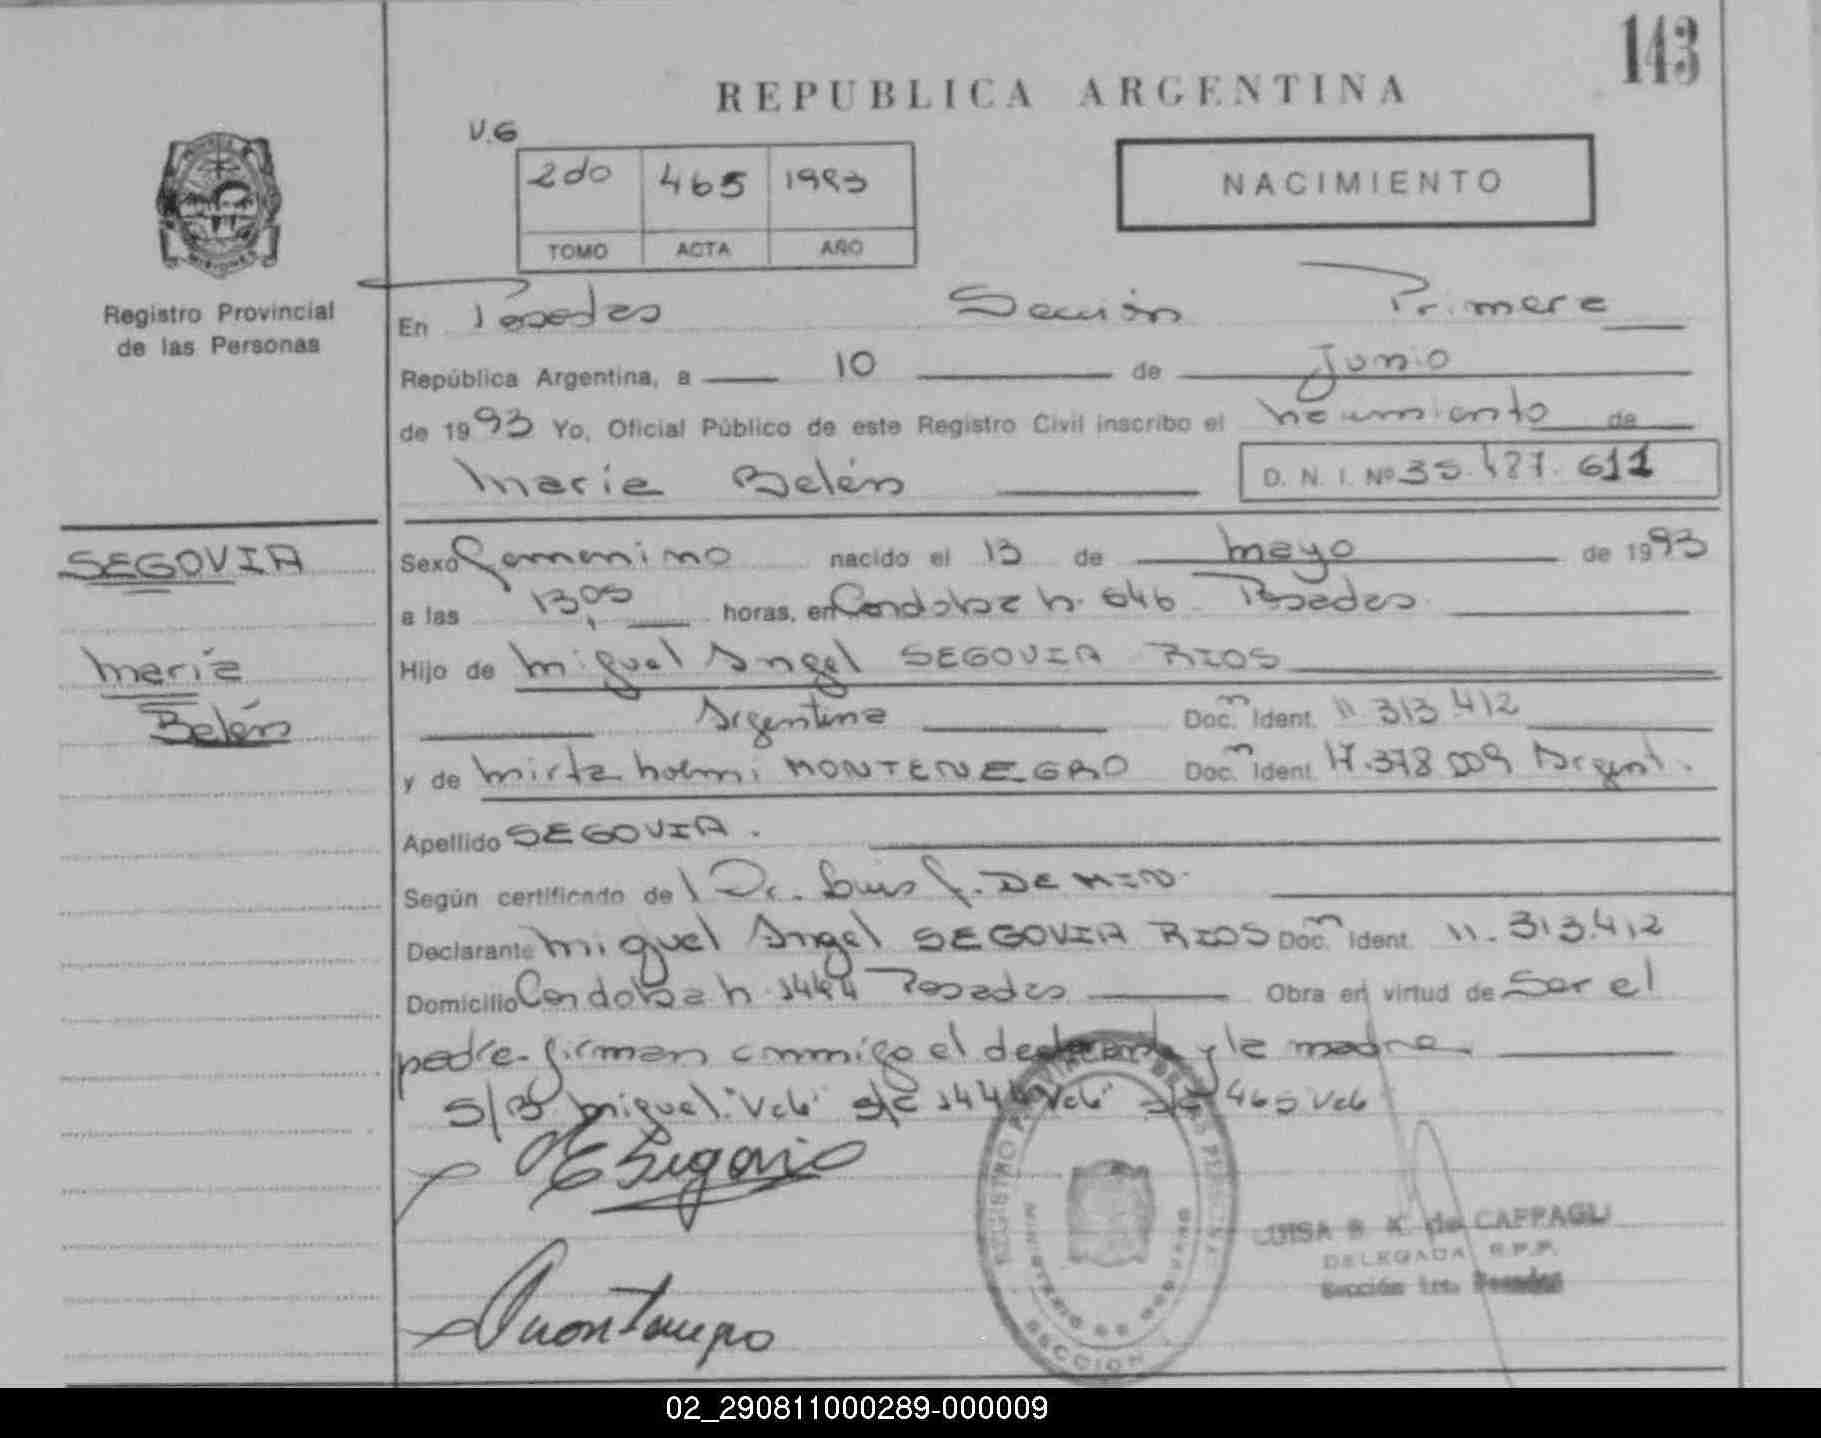 143
REPUBLICA ARGENTINA
V.G
2do 465 1993
TOMO ACTA AÑO
NACIMIENTO
MISIONES
Registro Provincial
de las Personas
En Posadas Sección Primera
República Argentina, a 10 de Junio
de 1993 Yo, Oficial Público de este Registro Civil inscribo el nacimiento de
María Belén D. N. I. Nº
SEGOVIA
María
Belén
Sexo femenino nacido el 13 de mayo de 1993
a las 13,05 horas, en Cordoba n. 646 Posadas
Hijo de Miguel Angel SEGOVIA RIOS
Argentina Doc. Ident. 11.313.412
y de Mirta MONTENEGRO Doc. Ident. 17.378.009 Argent.
Apellido SEGOVIA.
Según certificado de Dr. Luis
Declarante Miguel Angel SEGOVIA RIOS Doc. Ident. 11.313.412
Domicilio Cordoba n 1444 Posadas Obra en virtud de Ser el
padre. firman conmigo el declarante y la madre
S/B Miguel: "Vale" S/C 1444 Vale 465 Vale
REGISTRO PROVINCIAL DE LAS PERSONAS
MINISTERIO DE GOBIERNO
SECCION
LUISA B. K. de CAFFAGLI
DELEGADA R.P.P.
Sección 1ra. Posadas
02_290811000289-000009